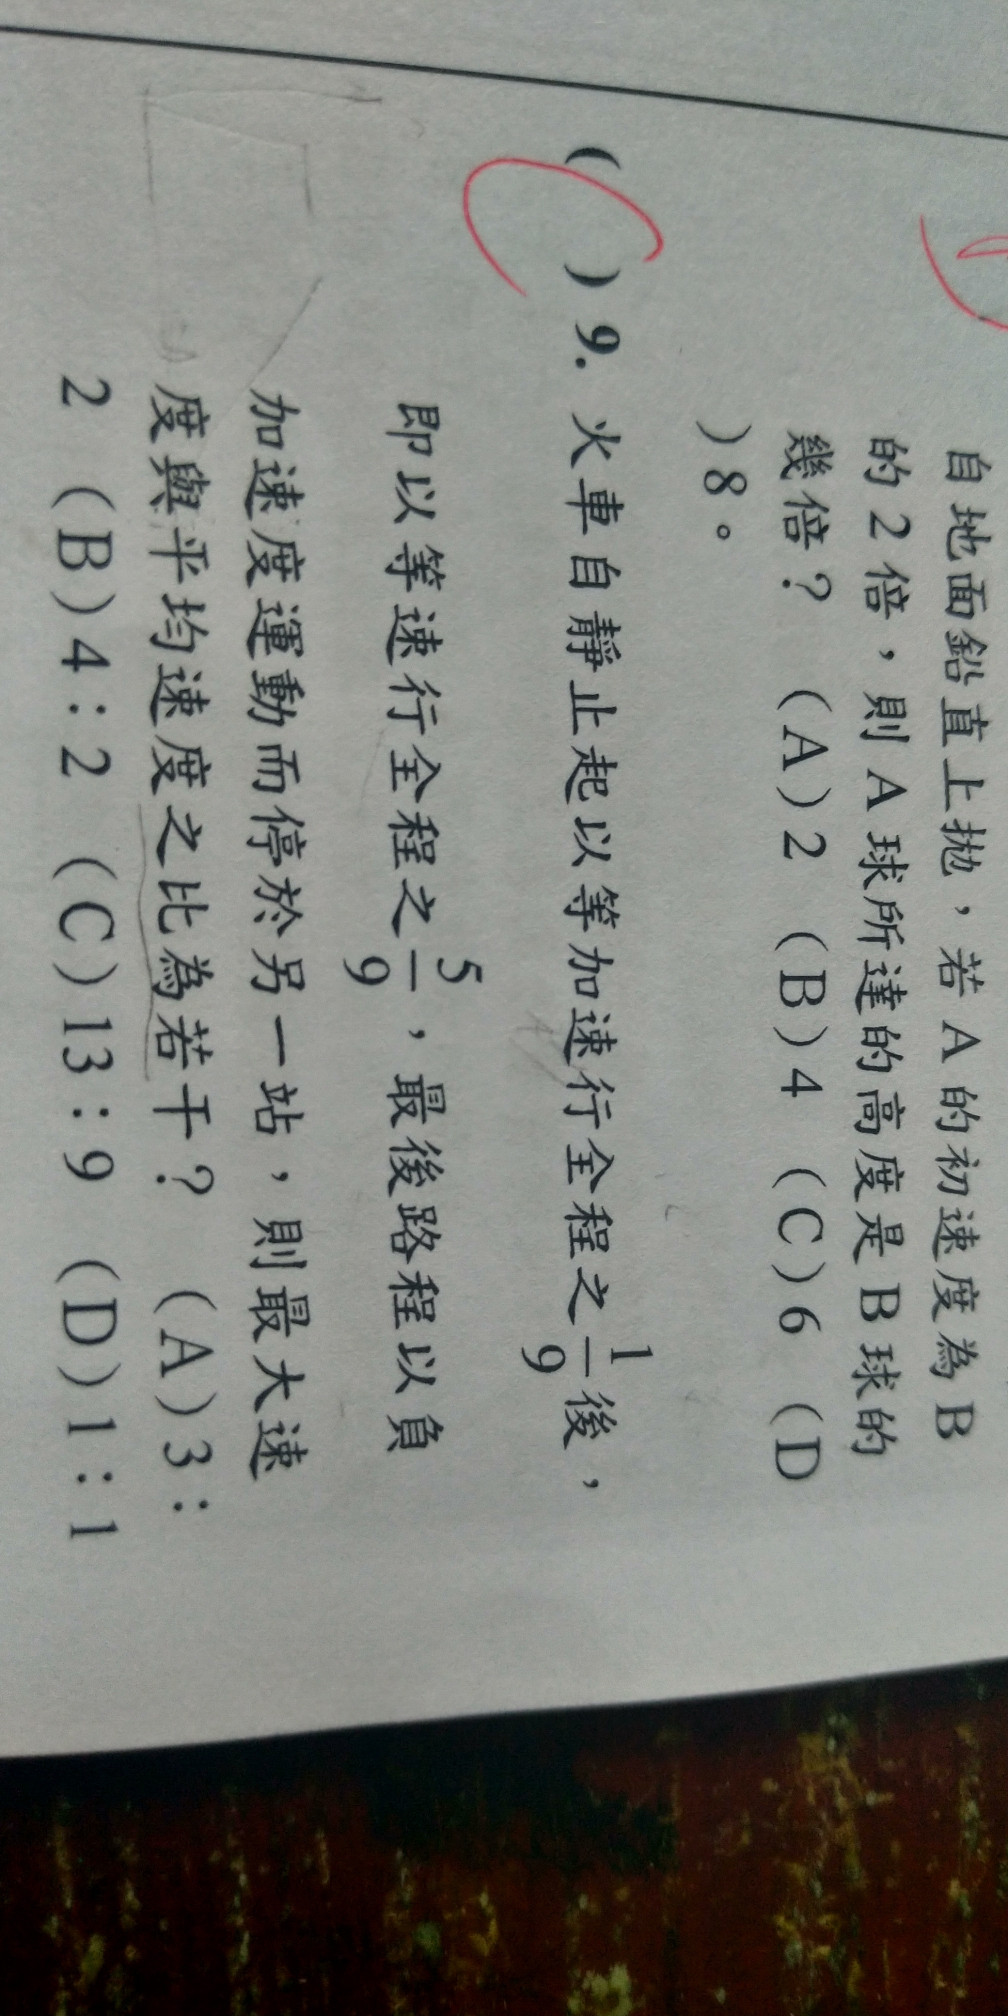 自地面鉛直上拋，若A的初速度為B
的2倍，則A球所達的高度是B球的
幾倍？ (A)2 (B)4 (C)6 (D
)8。
( )9. 火車自靜止起以等加速行全程之1/9後，
即以等速行全程之5/9，最後路程以負
加速度運動而停於另一站，則最大速
度與平均速度之比為若干？ (A)3：
2 (B)4：2 (C)13：9 (D)1：1